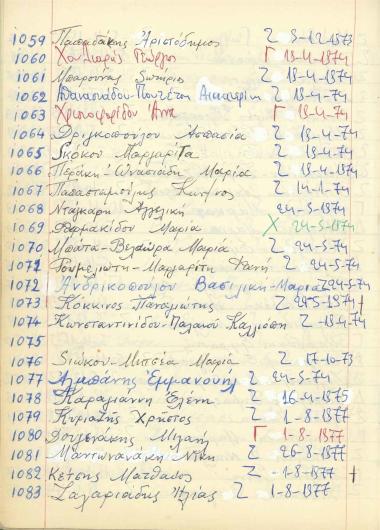 1059 Παπαδάκης Αριστόδημος Ζ 3-12-1973
1060 Χολιαρός Γεώργιος Γ 18-4-1974
1061 Μπαρούνας Σωτήριος Ζ 18-4-1974
1062 Αθανασιάδου-Πουτέτση Αικατερίνη Ζ 18-4-74
1063 Χριστοφορίδου Άννα Γ 18-4-1974
1064 Δριγκοπούλου Ασπασία Ζ 18-4-74
1065 Σκόκου Μαργαρίτα Ζ 18-4-74
1066 Μαρία Ζ 18-4-1974
1067 Παπασταμούλης Κων/νος Ζ 14-1-74
1068 Ντάγκαρη Αγγελική 24-5-1974
1069 Φαρμακίδου Μαρία Χ 24-5-1974
1070 Μπάτα-Βελαώρα Μαρία Ζ 24-5-74
1071 Ρουμελιώτη-Μαργαρίτη Φανή Ζ 24-5-74
1072 Ανδρικοπούλου Βασιλική-Μαρία Ζ 24-5-74
1073 Κόκκινος Παναγιώτης Ζ 24-5-1974 †
1074 Κωνσταντινίδου-Παλαιού Καλλιόπη Ζ -18-4-74
1075
1076 Σιώκου-Μιτσέα Μαρία Ζ 17-10-73
1077 Αλαπάνης Εμμανουήλ Ζ 24-5-74
1078 Καραγιάννη Ελένη Ζ 16-4-1975
1079 Κυριαζής Χρήστος Ζ 1-8-1977
1080 Μιχαήλ Γ 1-8-1977
1081 Μαντωνανάκη Νίκη Ζ 26-8-1977
1082 Κέτσης Ματθαίος Ζ -1-8-1977 †
1083 Σαλαριάδης Ηλίας Ζ -1-8-1977